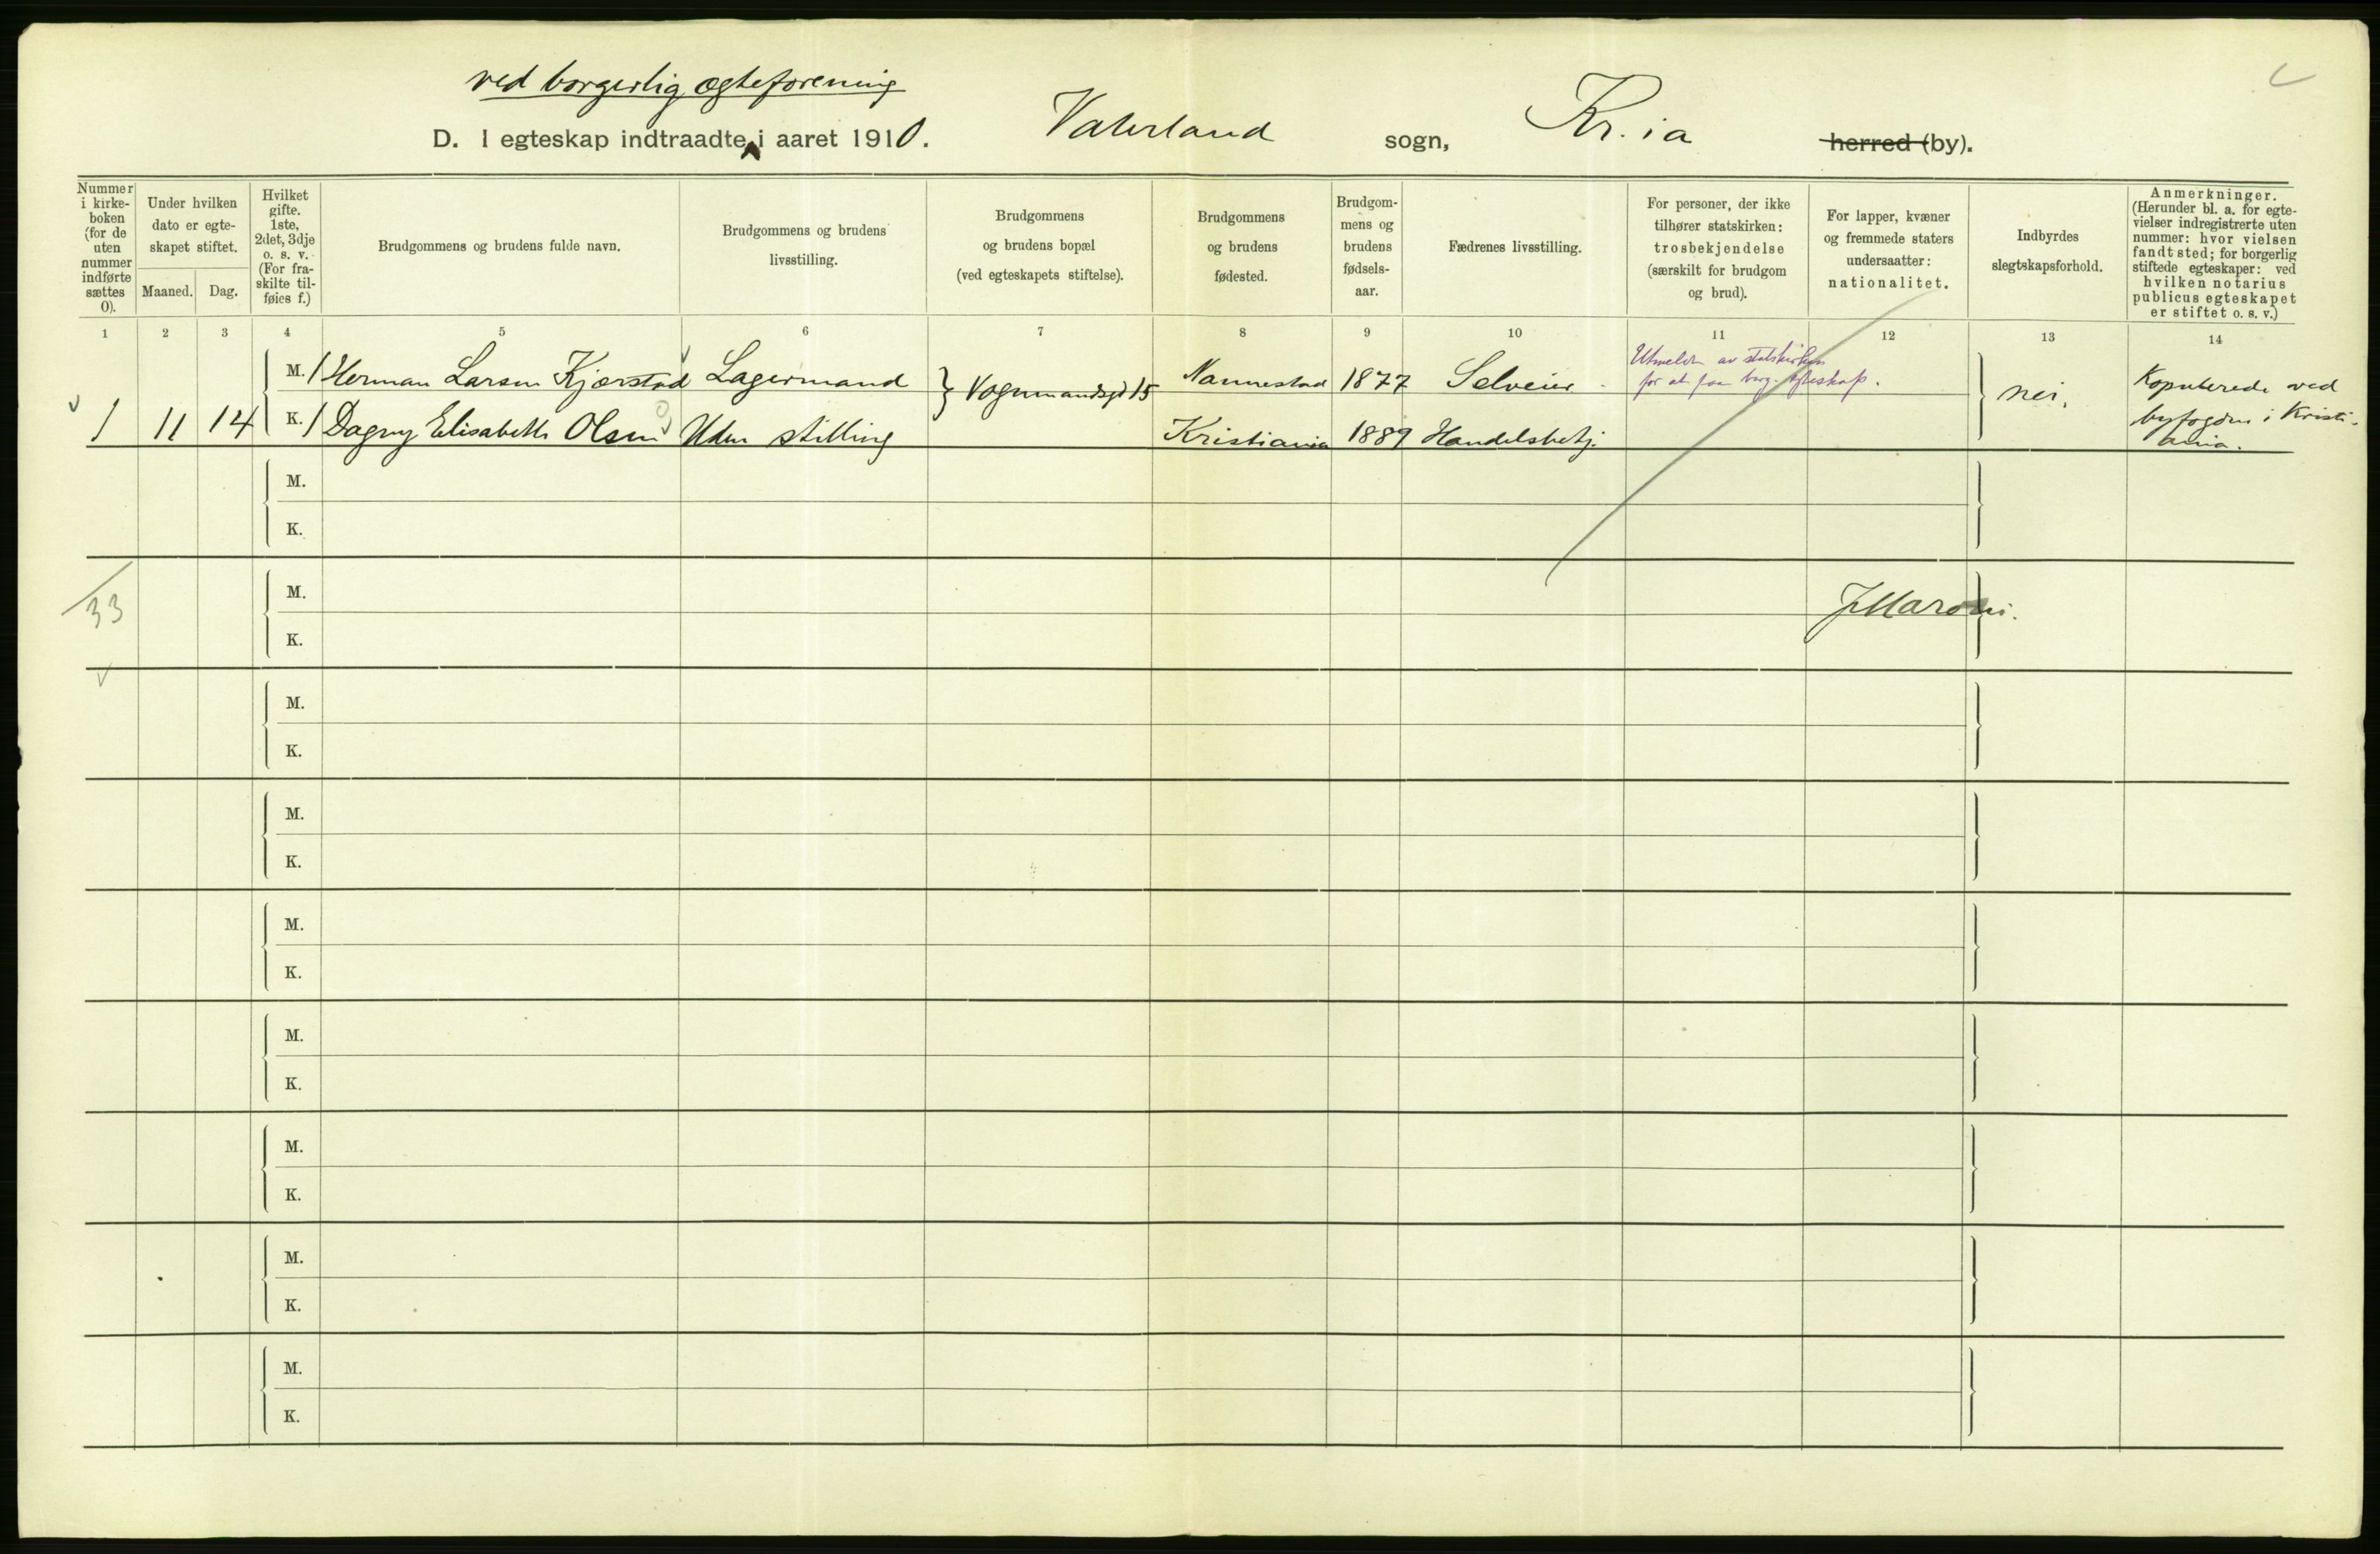 ved borgerlig ægteforening
D. I egteskap indtraadte i aaret 1910. Vaterland sogn, Kr.ia herred (by).
Nummer i kirke-boken (for de uten nummer indførte sættes 0).
Under hvilken dato er egte-skapet stiftet.
Maaned. Dag.
Hvilket gifte. 1ste, 2det, 3dje o. s. v. (For fra-skilte til-føies f.)
Brudgommens og brudens fulde navn.
Brudgommens og brudens livsstilling.
Brudgommens og brudens bopæl (ved egteskapets stiftelse).
Brudgommens og brudens fødested.
Brudgom-mens og brudens fødsels-aar.
Fædrenes livsstilling.
For personer, der ikke tilhører statskirken: trosbekjendelse (særskilt for brudgom og brud).
For lapper, kvæner og fremmede staters undersaatter: nationalitet.
Indbyrdes slegtskapsforhold.
Anmerkninger. (Herunder bl. a. for egte-vielser indregistrerte uten nummer: hvor vielsen fandt sted; for borgerlig stiftede egteskaper: ved hvilken notarius publicus egteskapet er stiftet o. s. v.)
1 2 3 4 5 6 7 8 9 10 11 12 13 14
M. 1 Herman Larsen Kjærstad Lagermand } Vognmandsgd 15 Nannestad 1877 Selveier Utmeldt av statskirken for at faa borg. egteskap. nei. Kopulerede ved
1 11 14 K. 1 Dagny Elisabeth Olsen Uden stilling Kristiania 1889 Handelsbetj. byfogden i Kristi-
ania.
M.
K.
33
M. JMaroni.
K.
M.
K.
M.
K.
M.
K.
M.
K.
M.
K.
M.
K.
M.
K.